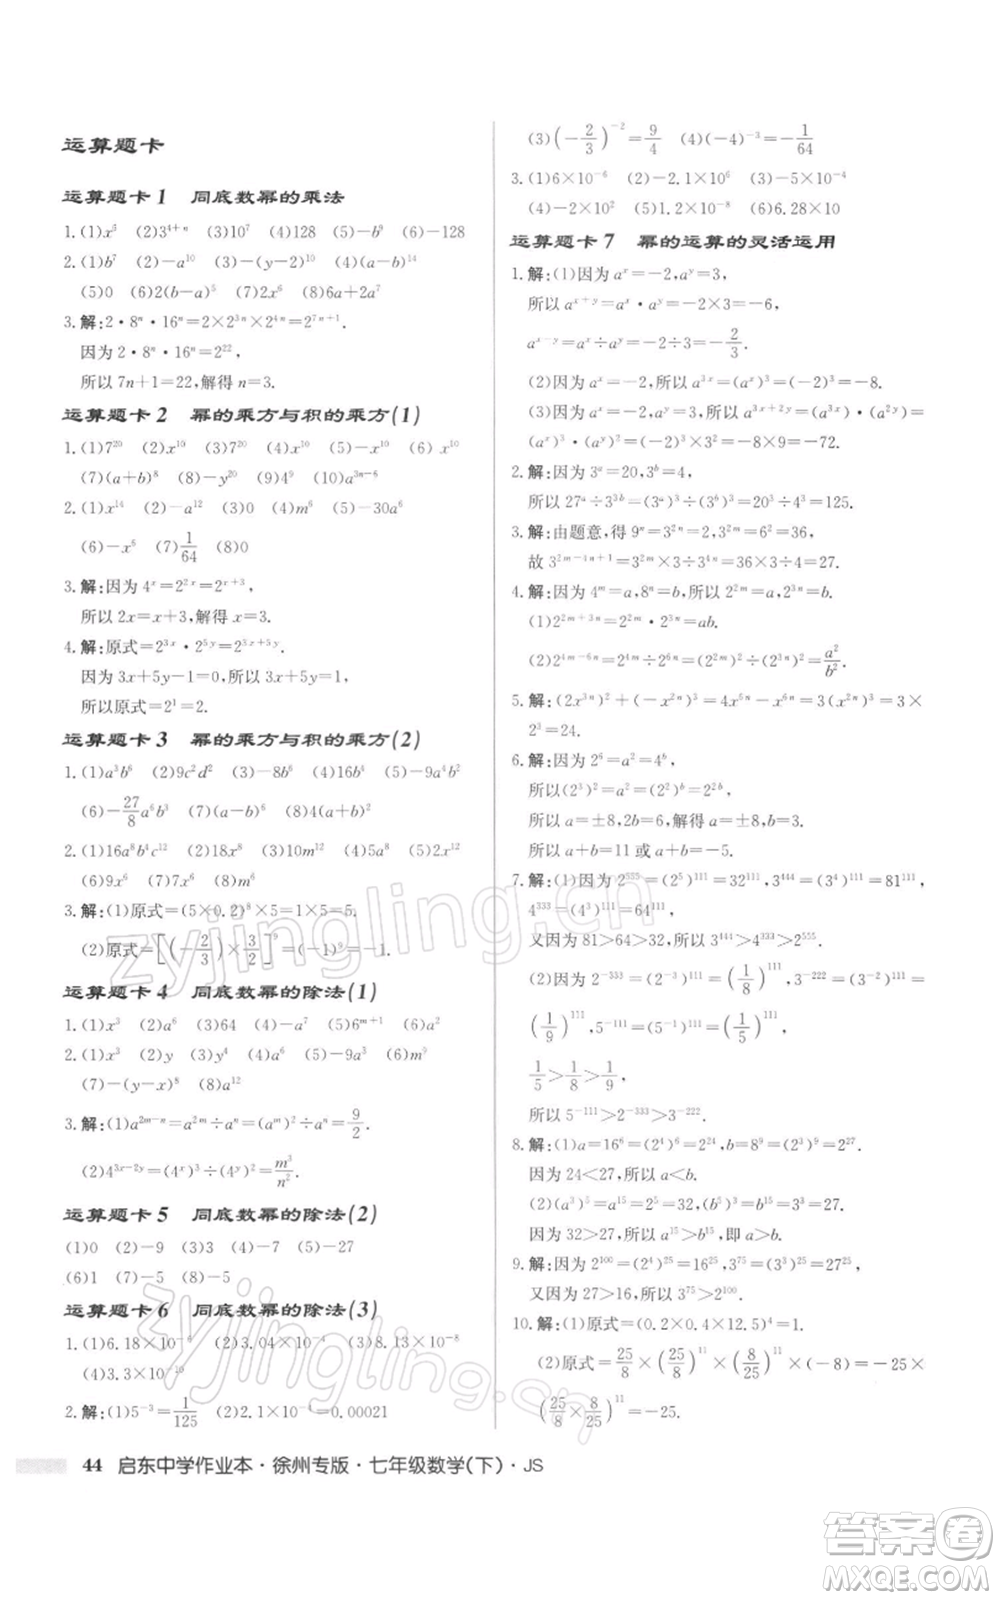 运算题卡
运算题卡1 同底数幂的乘法
1.(1)x⁵ (2)3⁴⁺ⁿ (3)10⁷ (4)128 (5)-b⁹ (6)-128
2.(1)b⁷ (2)-a¹⁰ (3)-(y-2)¹⁰ (4)(a-b)¹⁴
(5)0 (6)2(b-a)⁵ (7)2x⁶ (8)2a⁶+2a⁷
3.解:2·8ⁿ·16ⁿ=2×2³ⁿ×2⁴ⁿ=2⁷ⁿ⁺¹.
因为2·8ⁿ·16ⁿ=2²²,
所以7n+1=22,解得n=3.
运算题卡2 幂的乘方与积的乘方(1)
1.(1)7²⁰ (2)x¹⁰ (3)7²⁰ (4)x¹⁰ (5)-x¹⁰ (6)x¹⁰
(7)(a+b)⁸ (8)-x¹⁵ (9)4⁹ (10)a³ⁿ⁻⁶
2.(1)x¹⁴ (2)-a¹² (3)0 (4)m⁶ (5)-30a⁶
(6)-x⁶ (7)1/64 (8)0
3.解:因为4ˣ=2²ˣ=2ˣ⁺³,
所以2x=x+3,解得x=3.
4.解:原式=2³ˣ·2⁵ʸ=2³ˣ⁺⁵ʸ.
因为3x+5y-1=0,所以3x+5y=1,
所以原式=2¹=2.
运算题卡3 幂的乘方与积的乘方(2)
1.(1)a³b⁶ (2)9c²d² (3)-8b⁶ (4)16b⁴ (5)-9a⁴b²
(6)-27/8a⁶b⁶ (7)(a-b)⁶ (8)4(a+b)²
2.(1)16a⁸b⁴c¹² (2)9x⁶ (3)0 (4)x⁶ (5)2a¹²
(6)9x⁶ (7)a¹² (8)-m⁶
3.解:(1)原式=(5×0.2)⁸×5=1×5=5.
(2)原式=[(-2/3)×3/2]⁹=(-1)⁹=-1.
运算题卡4 同底数幂的除法(1)
1.(1)x³ (2)a⁶ (3)64 (4)-x³ (5)6ᵐ⁺¹ (6)a²
2.(1)x³ (2)y (3)y⁴ (4)x² (5)x² (6)m⁹
(7)-(y-x)⁸ (8)a¹²
3.解:(1)a²ᵐ⁻ⁿ=a²ᵐ÷aⁿ=(aᵐ)²÷aⁿ=9/2.
(2)4³ˣ⁻²ʸ=(4ˣ)³÷(4ʸ)²=m³/n².
运算题卡5 同底数幂的除法(2)
(1)0 (2)-9 (3)3 (4)-7 (5)-27
(6)1 (7)-5 (8)-5
运算题卡6 同底数幂的除法(3)
1.(1)6.18×10⁻⁶ (2)3.04×10⁻⁴ (3)8.13×10⁻⁸
(4)3.3×10⁻¹⁰
2.解:(1)5⁻³=1/125 (2)2.1×10⁻⁴=0.00021
(3)(-2/3)⁻²=9/4 (4)(-4)⁻³=-1/64
3.(1)6×10⁻⁶ (2)-2.1×10⁶ (3)-5×10⁻⁴
(4)-2×10² (5)1.2×10⁻⁸ (6)6.28×10
运算题卡7 幂的运算的灵活运用
1.解:(1)因为aˣ=-2,aʸ=3,
所以aˣ⁺ʸ=aˣ·aʸ=-2×3=-6,
aˣ⁻ʸ=aˣ÷aʸ=(-2)÷3=-2/3.
(2)因为aˣ=-2,所以a³ˣ=(aˣ)³=(-2)³=-8.
(3)因为aˣ=-2,aʸ=3,所以a³ˣ⁺²ʸ=(a³ˣ)·(a²ʸ)=
(aˣ)³·(aʸ)²=(-2)³×3²=-8×9=-72.
2.解:因为3ᵃ=20,3ᵇ=4,
所以27ᵃ÷3³ᵇ=(3ᵃ)³÷(3ᵇ)³=20³÷4³=5³=125.
3.解:由题意,得9ⁿ=3²ⁿ=2,3²ᵐ=6²=36,
故3²ᵐ⁻⁴ⁿ⁺¹=3²ᵐ×3÷3⁴ⁿ=36×3÷2²=27.
4.解:因为4ᵐ=a,8ⁿ=b,所以2²ᵐ=a,2³ⁿ=b.
(1)2²ᵐ⁺³ⁿ=2²ᵐ·2³ⁿ=ab.
(2)2⁴ᵐ⁻⁶ⁿ=2⁴ᵐ÷2⁶ⁿ=(2²ᵐ)²÷(2³ⁿ)²=a²/b².
5.解:(2x³ⁿ)²+(-x²ⁿ)³=4x⁶ⁿ-x⁶ⁿ=3(x²ⁿ)³=3×
2³=24.
6.解:因为2⁶=a²=4ᵇ,
所以(2³)²=a²=(2²)ᵇ=2²ᵇ,
所以a=±8,2b=6,解得a=±8,b=3.
所以a+b=11或a+b=-5.
7.解:(1)因为2⁵⁵⁵=(2⁵)¹¹¹=32¹¹¹,3⁴⁴⁴=(3⁴)¹¹¹=81¹¹¹,
4³³³=(4³)¹¹¹=64¹¹¹,
又因为81>64>32,所以3⁴⁴⁴>4³³³>2⁵⁵⁵.
(2)因为2⁻³³³=(2⁻³)¹¹¹=(1/8)¹¹¹,3⁻²²²=(3⁻²)¹¹¹=
(1/9)¹¹¹,5⁻¹¹¹=(5⁻¹)¹¹¹=(1/5)¹¹¹,
1/5>1/8>1/9,
所以5⁻¹¹¹>2⁻³³³>3⁻²²².
8.解:(1)a=16⁶=(2⁴)⁶=2²⁴,b=8⁹=(2³)⁹=2²⁷.
因为24<27,所以a<b.
(2)(a³)⁵=a¹⁵=2⁵=32,(b⁵)³=b¹⁵=3³=27.
因为32>27,所以a¹⁵>b¹⁵,即a>b.
9.解:因为2¹⁰⁰=(2⁴)²⁵=16²⁵,3⁷⁵=(3³)²⁵=27²⁵,
又因为27>16,所以3⁷⁵>2¹⁰⁰.
10.解:(1)原式=(0.2×0.4×12.5)⁴=1.
(2)原式=25/8×(25/8)¹¹×(8/25)¹¹×(-8)=-25×
(25/8×8/25)¹¹=-25.
44 启东中学作业本·徐州专版·七年级数学(下)·JS
zyjingling.cn
zyjingling.cn
答案卷
MXQE.COM